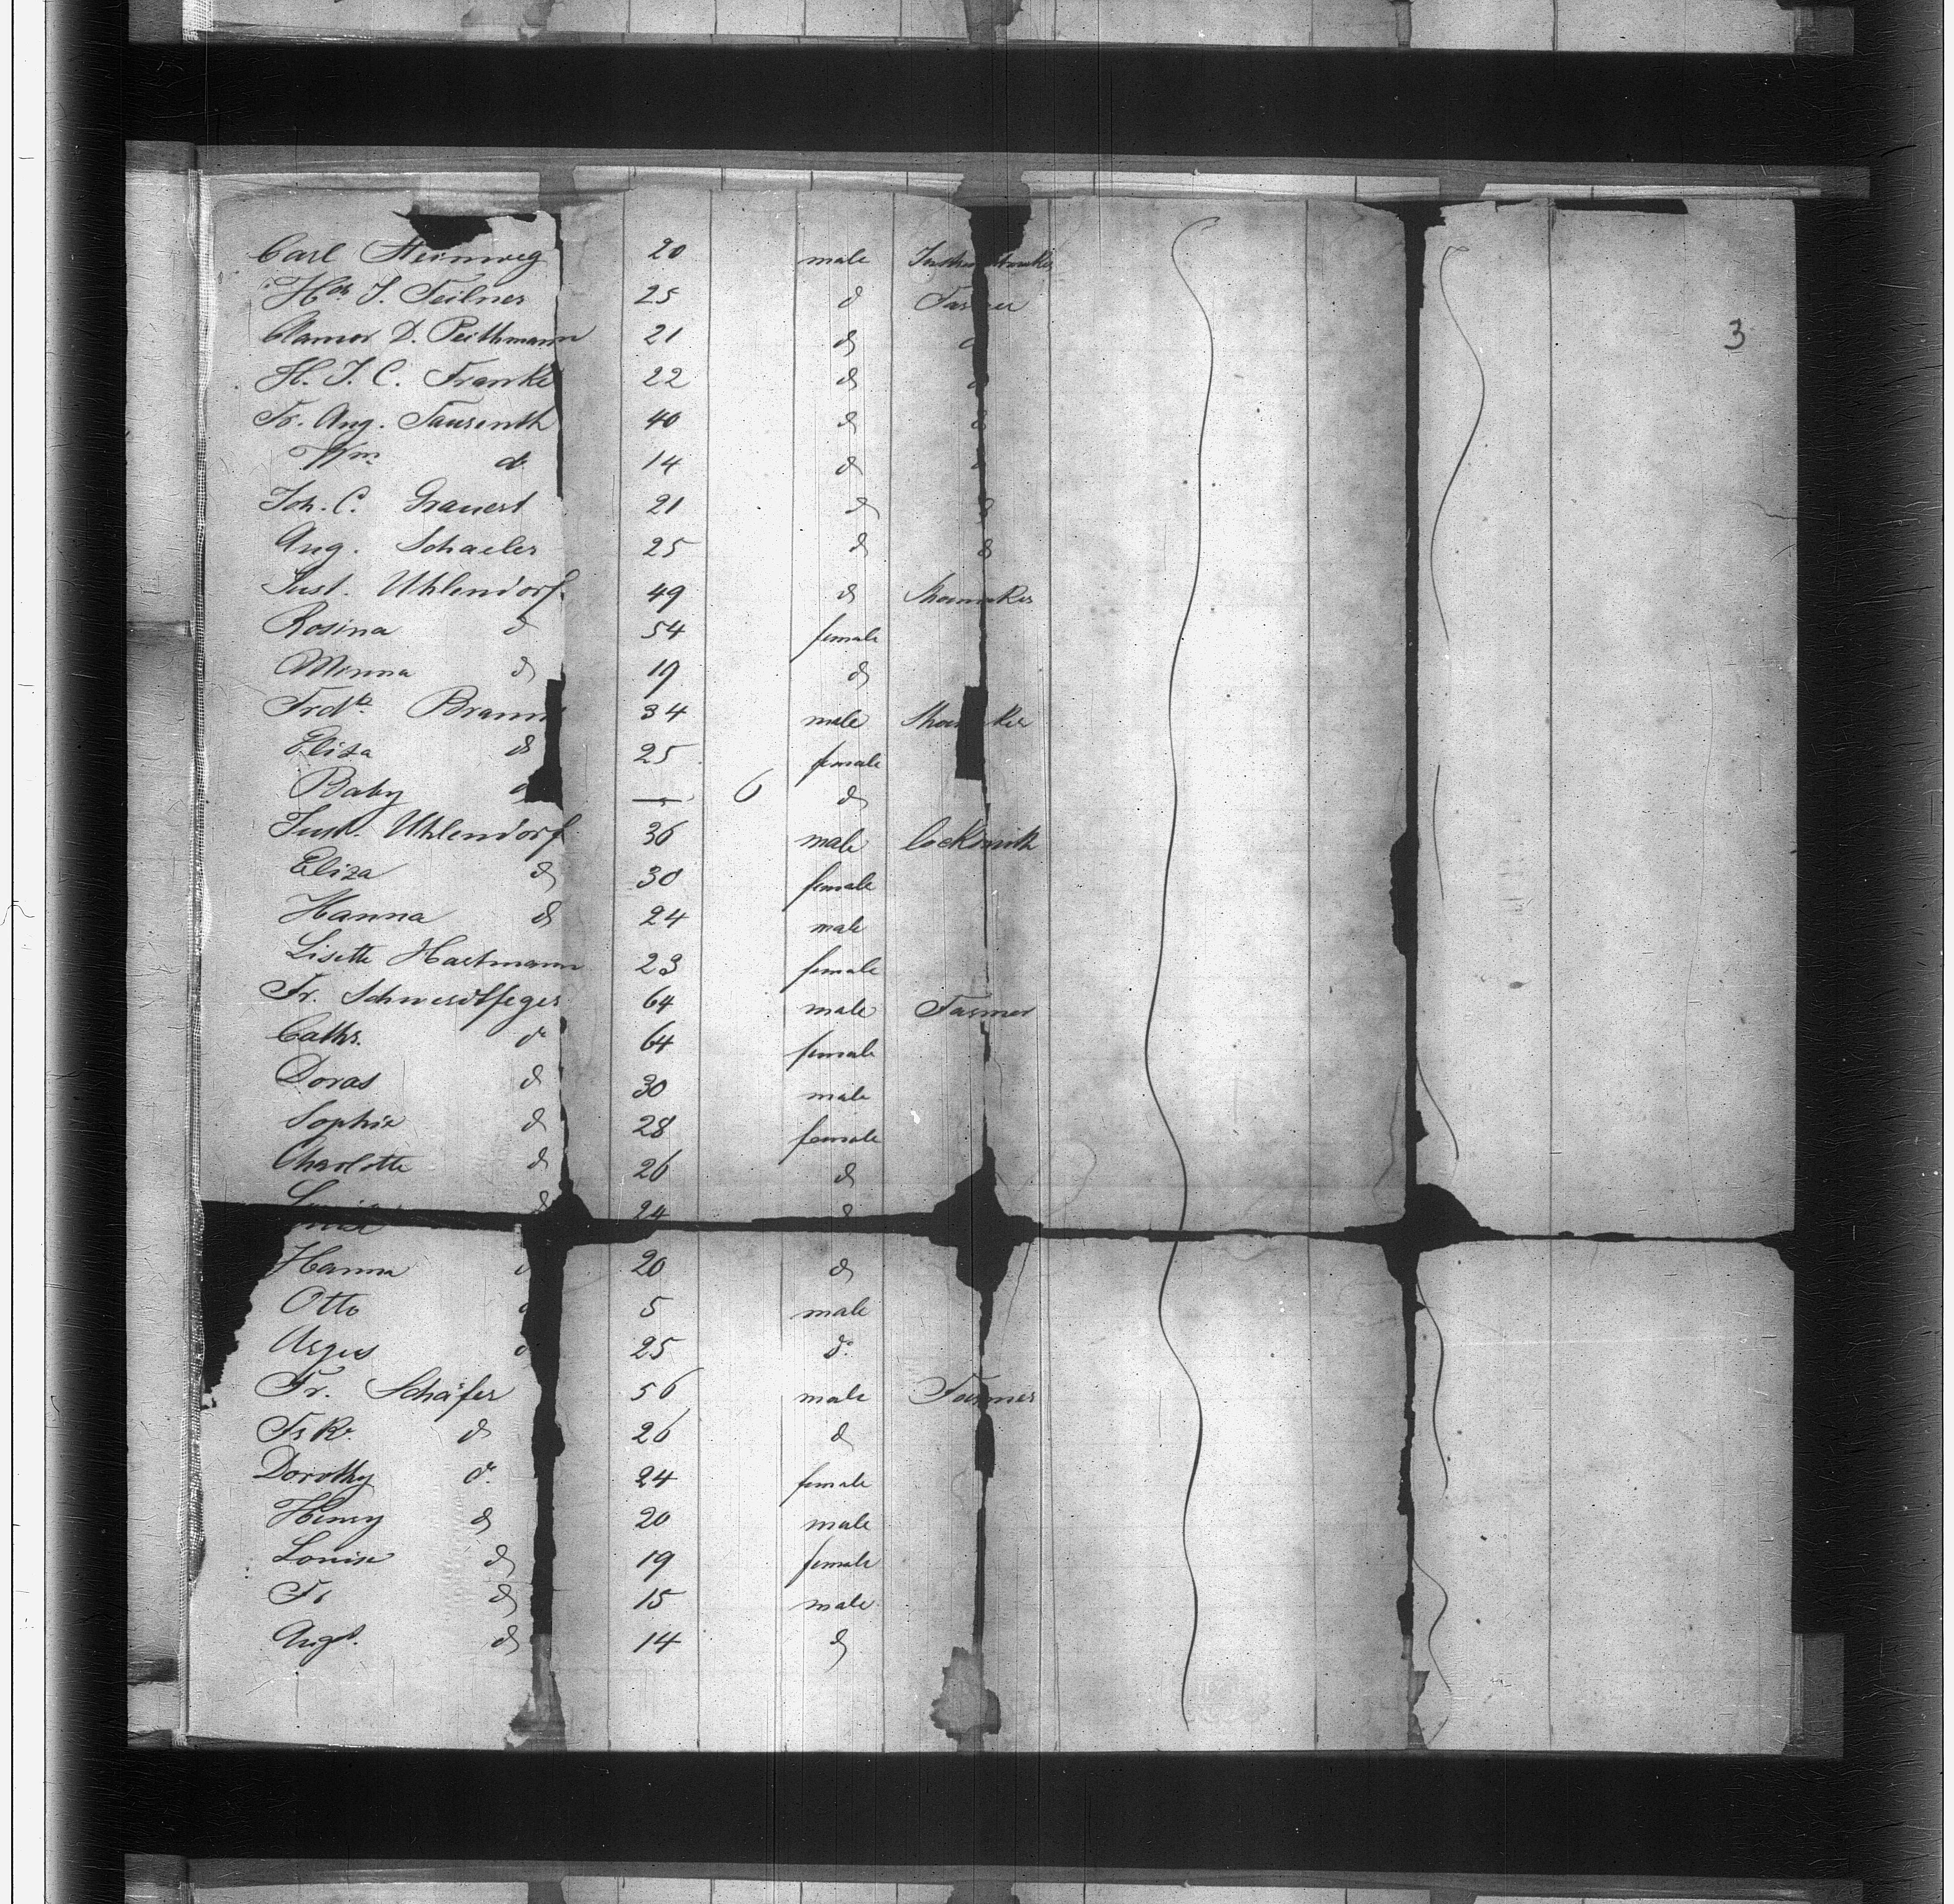 Carl Steinweg 20 male
Hch J. Teilner 25 d Farmer
Clamor D. Peithmann 21 d d
H. J. C. Franke 22 d d
Fr. Aug. Tausenth 40 d d
Wm d 14 d d
Joh. C. Grauert 21 d d
Aug. Schaeler 25 d d
Just. Uhlendorf 49 d Shoemaker
Rosina d 54 female
Minna d 19 d
Frdk Braun 34 male Shoemaker
Eliza d 25 female
Baby d — 6 d
Just. Uhlendorf 36 male Locksmith
Eliza d 30 female
Hanna d 24 male
Lisette Hartmann 23 female
Fr. Schwerdtfeger 64 male Farmer
Cathr. do 64 female
Doras d 30 male
Sophie d 28 female
Charlotte d 26 d
Louise d 24 d
Hanna d 20 d
Otto d 5 male
d 25 do
Fr. Schäfer 56 male Farmer
d 26 d
Dorothy do 24 female
Henry d 20 male
Louise d 19 female
Fr d 15 male
Augt. d 14 d
3